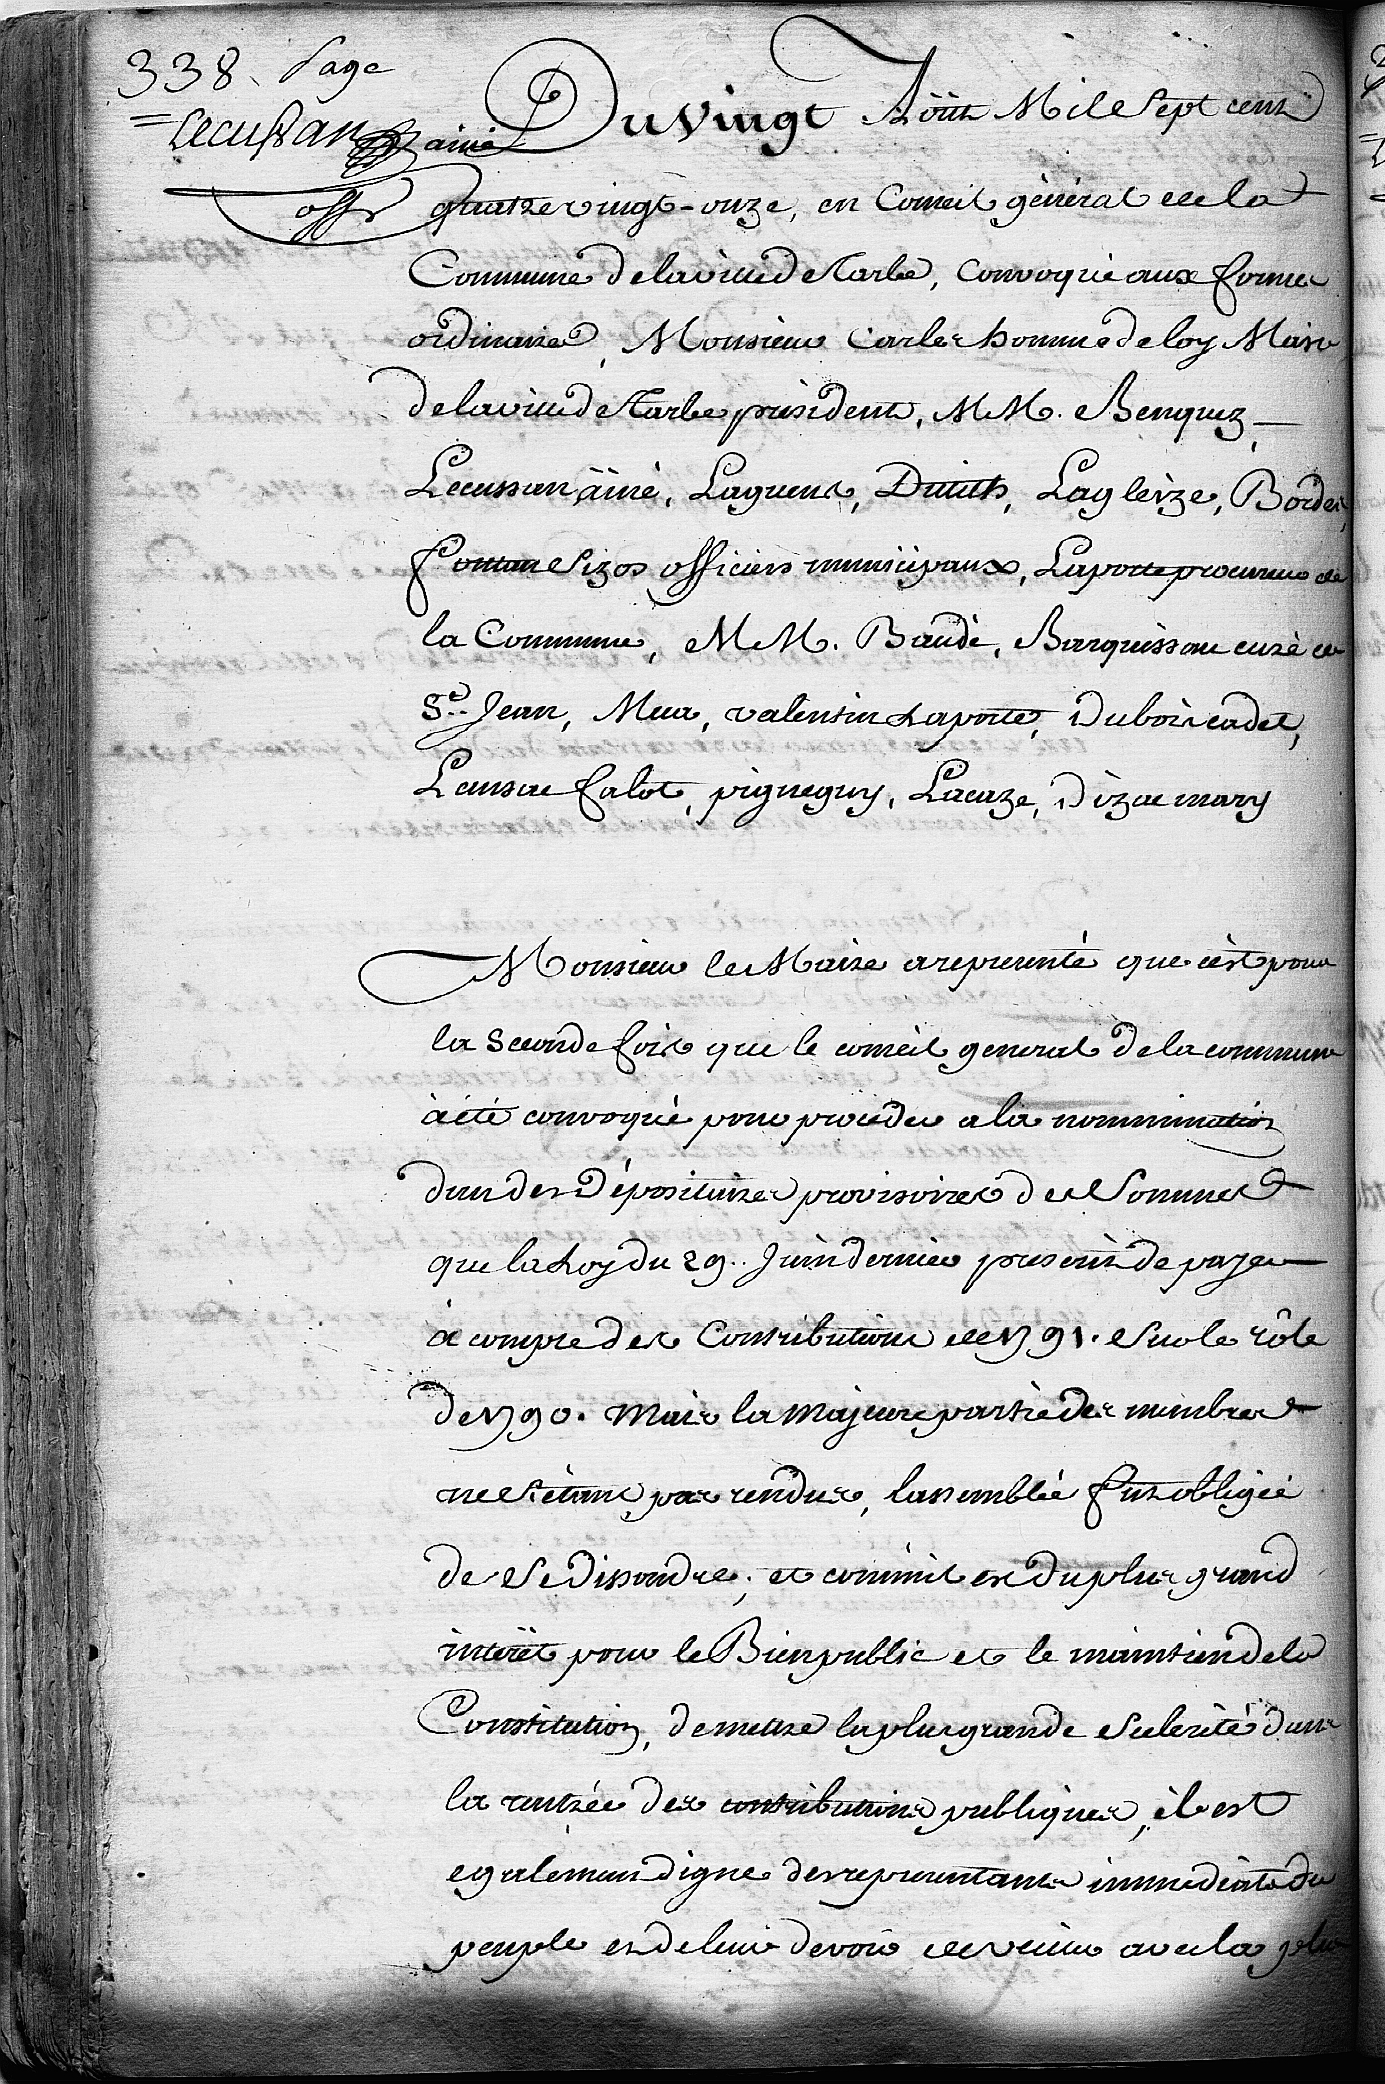 338. Page
Lecussan ainé
offr
Du Vingt Aôut Mil Sept cent
quatre vingt-onze, en Conseil général de la
Commune de la ville de Tarbe, convoqué aux formes
ordinaires, Monsieur Carles homme de loy Maire
de la ville de Tarbe président, MM. Benquez
Lecussan äiné, Laguens, Dutilh, Lagleize, Bordes,
fontan Sizos officiers municipaux, Laporte procureur de
la Commune, MM. Baudé, Barquissau curé de
St. Jean, Mua, valentin Laporte, Dubois cadet,
Lansac falot, pigneguy, Lacaze, Dizac mary
Monsieur le Maire a representé que c'est pour
la Seconde fois que le conseil general de la commune
à été convoqué pour proceder a la nommination
d'un des Dépositaires provisoires des Sommes
que la Loy du 29.. Juin dernier prescrit de payer
à compte des Contributions de 1791. Sur le rôle
de 1790. Mais la Majeure partie des membres
ne S'étant pas rendus, l'assemblée fut obligée
de Se Dissoudre; et comme il est du plus grand
interêt pour le Bien public et le maintien de la
Constitution, de mettre la plus grande Selerité dans
la rentrée des contributions publiques, il est
egalement digne des representants immediats du
peuple et de leur devoir de veiller avec la plus